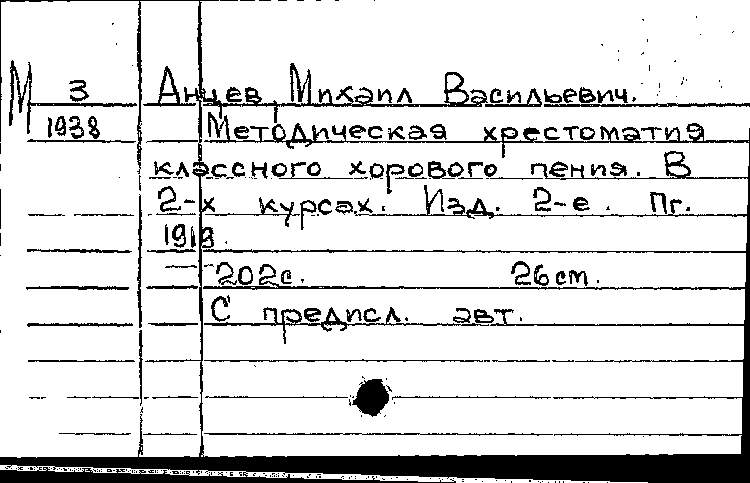 М З Анцев, Михаил Васильевич.
1938 Методическая хрестоматия
классного хорового пения. В
2-х курсах. Изд. 2-е. Пг.
1919.
202с. 26см.
С предисл. авт.